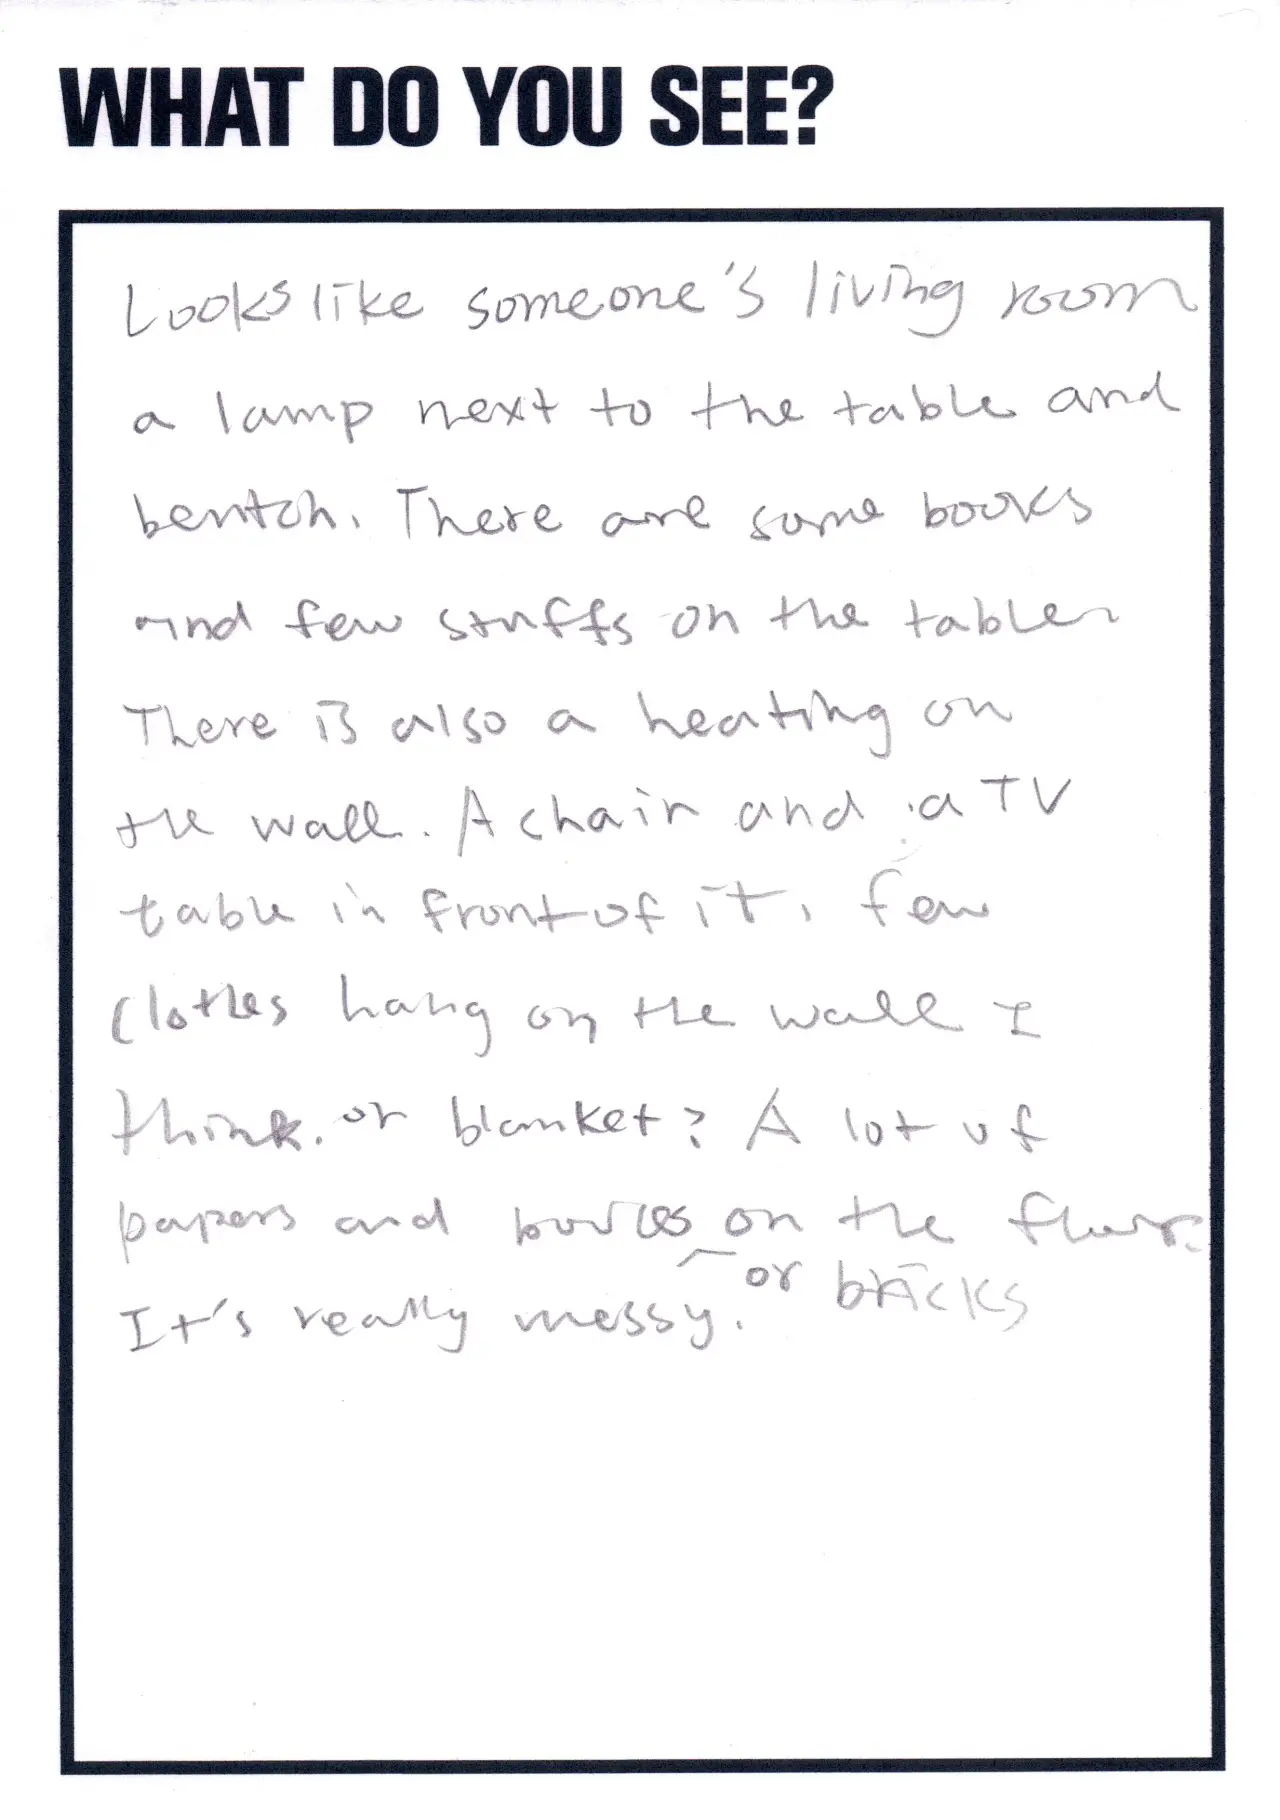 WHAT DO YOU SEE?
Looks like someone's living room
a lamp next to the table and
bentch. There are some books
and few stuffs on the table.
There is also a heating on
the wall. A chair and a TV
table in front of it. few
clothes hang on the wall I
think. or blanket? A lot of
papers and on the floor.
or bricks
It's really messy.